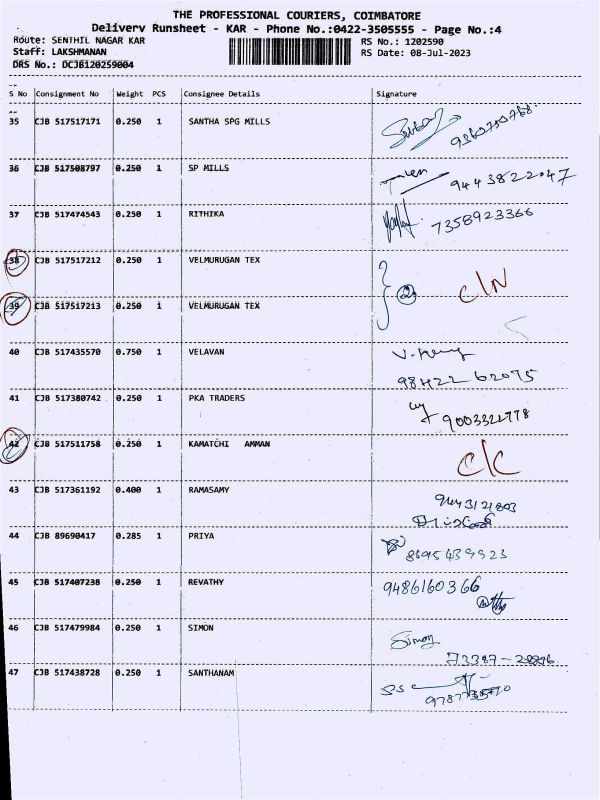 THE PROFESSIONAL COURIERS, COIMBATORE
Delivery Runsheet - KAR - Phone No.:0422-3505555 - Page No.:4
Route: SENTHIL NAGAR KAR RS No.: 1202590
Staff: LAKSHMANAN RS Date: 08-Jul-2023
DRS No.: DCJB120259004
S No Consignment No Weight PCS Consignee Details Signature
35 CJB 517517171 0.250 1 SANTHA SPG MILLS
36 CJB 517508797 0.250 1 SP MILLS
37 CJB 517474543 0.250 1 RITHIKA 7358923366
38 CJB 517517212 0.250 1 VELMURUGAN TEX
39 CJB 517517213 0.250 1 VELMURUGAN TEX 2 C/N
40 CJB 517435570 0.750 1 VELAVAN
98422 62075
41 CJB 517380742 0.250 1 PKA TRADERS
42 CJB 517511758 0.250 1 KAMATCHI AMMAN C/C
43 CJB 517361192 0.400 1 RAMASAMY
44 CJB 89690417 0.285 1 PRIYA
8695439923
45 CJB 517407238 0.250 1 REVATHY 9486160366
46 CJB 517479984 0.250 1 SIMON Simon
47 CJB 517438728 0.250 1 SANTHANAM